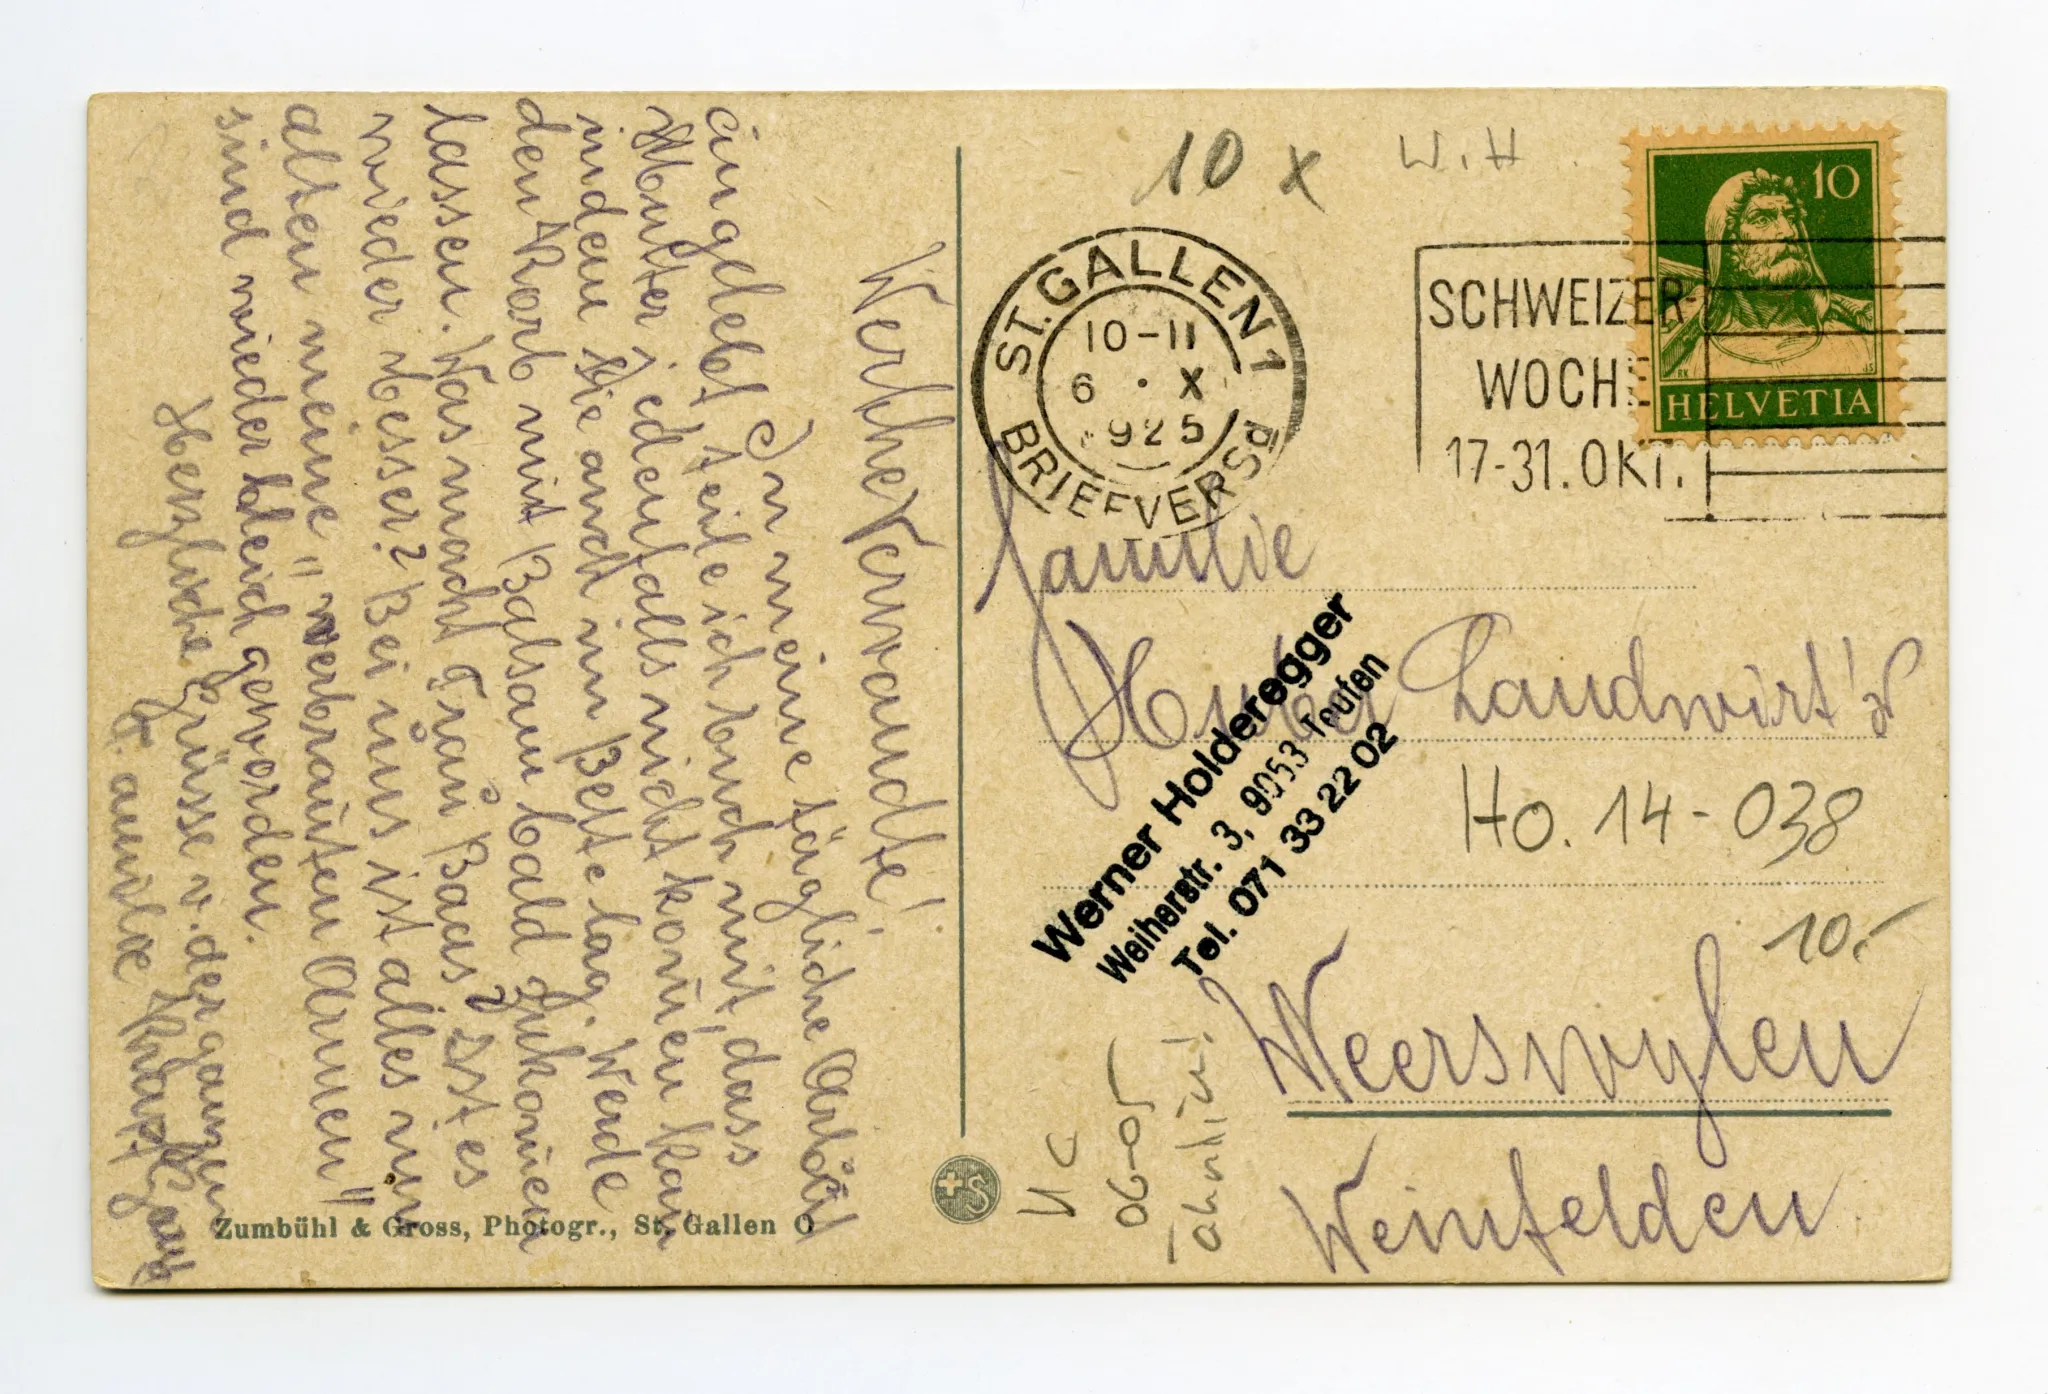 Werthe Verwandte!
In meine tägliche Arbeit
eingelebt, teile ich Euch mit, dass
Mutter jedenfalls nicht kom̅en kan̅
indem Sie auch im Bette lag. Werde
den Korb mit Balsam bald zukom̅en
lassen. Was macht Frau Baas? Ist es
wieder besser? Bei uns ist alles im
alten meine "verbrauten Armen"
sind wieder bleich geworden.
Herzliche Grüsse v. der ganzen
Familie
Zumbühl & Gross, Photogr., St. Gallen O
10 x
W.H.
10
HELVETIA
ST. GALLEN 1
10-11
6 · X
1925
BRIEFVERSD
SCHWEIZER-
WOCHE
17-31. OKT.
Familie
Huber Landwirt's
Werner Holderegger
Weiherstr. 3, 9053 Teufen
Tel. 071 33 22 02
Ho. 14-038
10.-
Weerswylen
Weinfelden
06-05